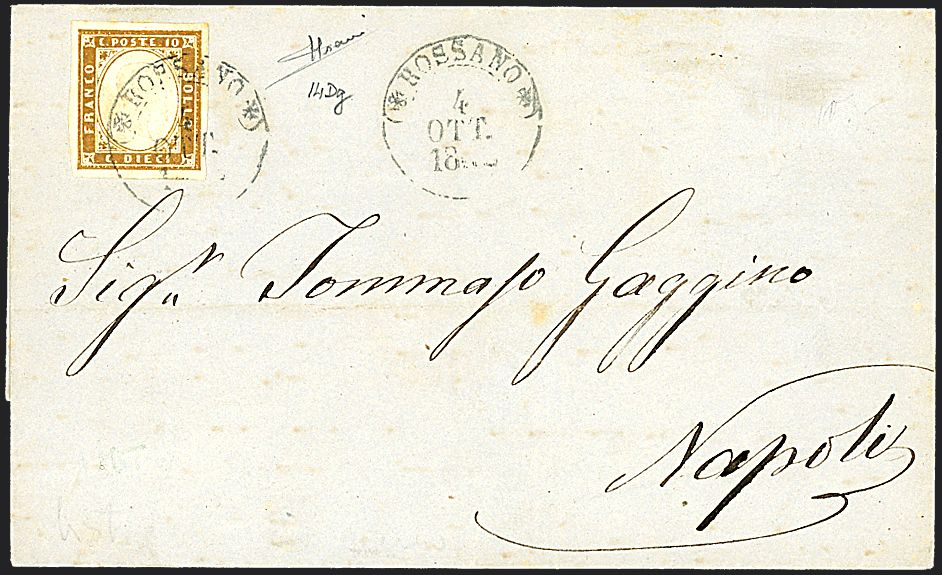 C. POSTE. 10
FRANCO
BOLLO
C. DIECI
ROSSANO
OTT.
14Dg
ROSSANO
4
OTT.
18
Sigr. Tommaso Gaggino
Napoli